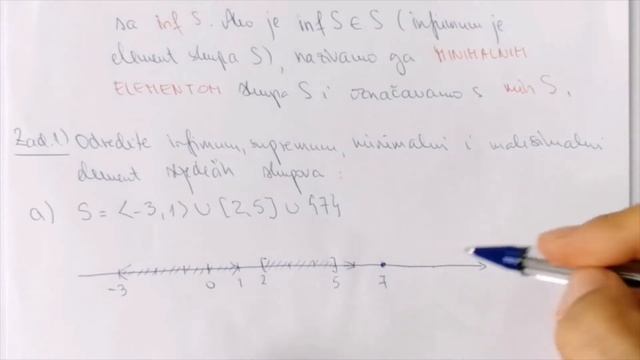 sa inf S. Ako je inf S ∈ S (infimum je
element skupa S), nazivamo ga MINIMALNIM
ELEMENTOM skupa S i označavamo s min S.
Zad.1) Odredite infimum, supremum, minimalni i maksimalni
element sljedećih skupova:
a) S = ⟨-3,1⟩ ∪ [2,5] ∪ {7}
-3 0 1 2 5 7